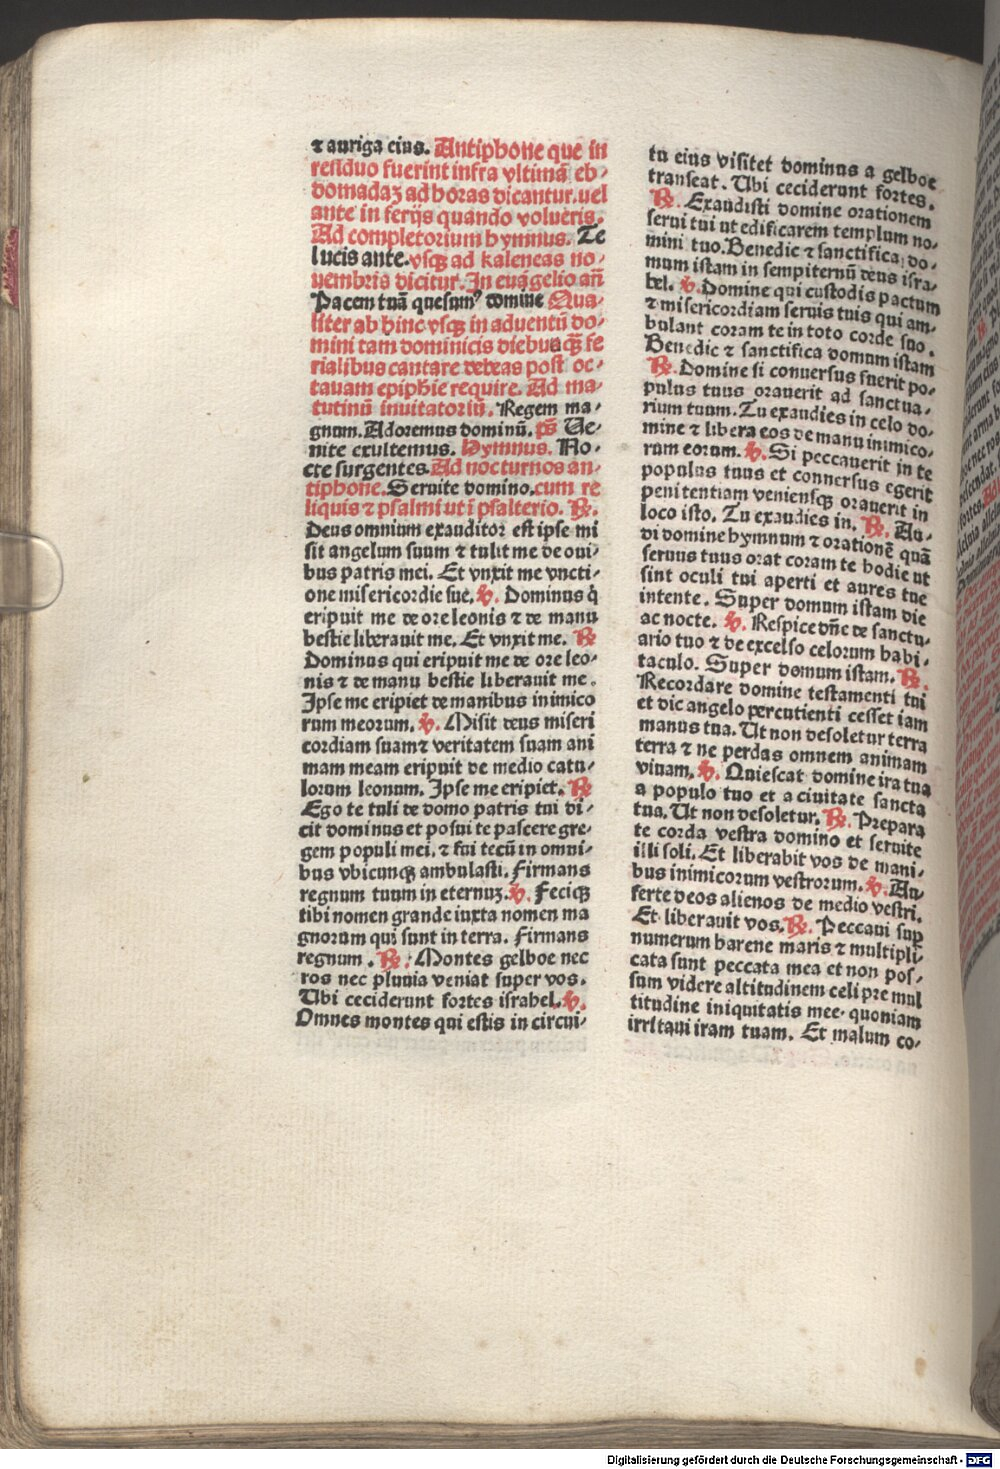 ⁊ auriga eius. Antiphone que in
residuo fuerint infra vltimā eb⸗
domadaꝫ ad horas dicantur. uel
ante in ferijs quando volueris.
Ad completorium hymnus. Te
lucis ante. vsqꝫ ad kaleneas no⸗
uembris dicitur. In euāgelio añ
Pacem tuā quesumꝰ domine Qua⸗
liter ab hinc vsqꝫ in aduentū do⸗
mini tam dominicis diebusqꝫ fe
rialibus cantare debeas post oc⸗
tauam epiphīe require. Ad ma⸗
tutinū inuitatoriū. Regem ma⸗
gnum. Adoremus dominū. ps̄ Ue⸗
nite exultemus. Hymnus. No⸗
cte surgentes. Ad nocturnos an⸗
tiphone. Seruite domino. cum re
liquis ⁊ psalmi ut ī psalterio. ℞.
Deus omnium exauditor est ipse mi
sit angelum suum ⁊ tulit me de oui⸗
bus patris mei. Et vnxit me vncti⸗
one misericordie sue. ℣. Dominus q̄
eripuit me de ore leonis ⁊ de manu
bestie liberauit me. Et vnxit me. ℞
Dominus qui eripuit me de ore leo⸗
nis ⁊ de manu bestie liberauit me.
Ipse me eripiet de manibus inimico
rum meorum. ℣. Misit deus miseri
cordiam suam ⁊ veritatem suam ani
mam meam eripuit de medio catu⸗
lorum leonum. Ipse me eripiet. ℞
Ego te tuli de domo patris tui di⸗
cit dominus et posui te pascere gre⸗
gem populi mei. ⁊ fui tecū in omni⸗
bus vbicunqꝫ ambulasti. Firmans
regnum tuum in eternuꝫ. ℣. Feciqꝫ
tibi nomen grande iuxta nomen ma
gnorum qui sunt in terra. Firmans
regnum. ℞. Montes gelboe nec
ros nec pluuia veniat super vos.
Ubi ceciderunt fortes israhel. ℣.
Omnes montes qui estis in circui⸗
tu eius visitet dominus a gelboe
transeat. Ubi ceciderunt fortes.
℞. Exaudisti domine orationem
serui tui ut edificarem templum no⸗
mini tuo. Benedic ⁊ sanctifica do⸗
mum istam in sempiternū deus isra⸗
hel. ℣. Domine qui custodis pactum
⁊ misericordiam seruis tuis qui am⸗
bulant coram te in toto corde suo.
Benedic ⁊ sanctifica domum istam
℞. Domine si conuersus fuerit po⸗
pulus tuus orauerit ad sanctua⸗
rium tuum. Tu exaudies in celo do⸗
mine ⁊ libera eos de manu inimico⸗
rum eorum. ℣. Si peccauerit in te
populus tuus et conuersus egerit
penitentiam veniensqꝫ orauerit in
loco isto. Tu exaudies in. ℞. Au⸗
di domine hymnum ⁊ orationē quā
seruus tuus orat coram te hodie ut
sint oculi tui aperti et aures tue
intente. Super domum istam die
ac nocte. ℣. Respice dn̄e de sanctu⸗
ario tuo ⁊ de excelso celorum habi⸗
taculo. Super domum istam. ℞.
Recordare domine testamenti tui
et dic angelo percutienti cesset iam
manus tua. Ut non desoletur terra
terra ⁊ ne perdas omnem animam
viuam. ℣. Quiescat domine ira tua
a populo tuo et a ciuitate sancta
tua. Ut non desoletur. ℞. Prepara
te corda vestra domino et seruite
illi soli. Et liberabit vos de mani⸗
bus inimicorum vestrorum. ℣. Au⸗
ferte deos alienos de medio vestri.
Et liberauit vos. ℞. Peccaui suꝑ
numerum harene maris ⁊ multipli⸗
cata sunt peccata mea et non pos⸗
sum videre altitudinem celi pre mul
titudine iniquitatis mee. quoniam
irritaui iram tuam. Et malum co⸗
Digitalisierung gefördert durch die Deutsche Forschungsgemeinschaft - DFG